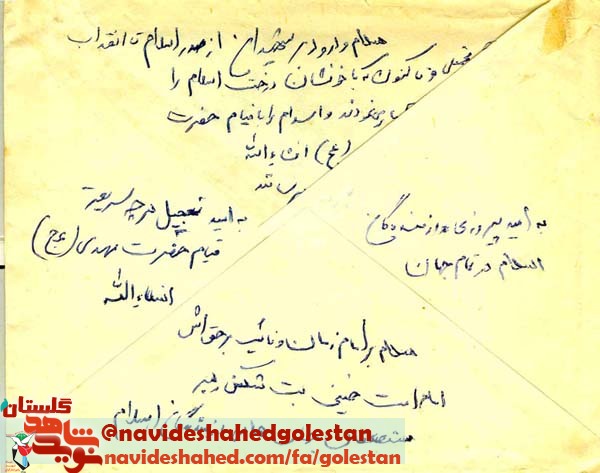 سلام و درود بر شهیدان از صدر اسلام تا انقلاب
و تا کنون که با خونشان درخت اسلام را
نمودند و اسلام را با قیام حضرت
(عج) انشاءالله
به امید پیروزی رزمندگان
اسلام در تمام جهان
به امید تعجیل هرچه سریعتر
قیام حضرت مهدی (عج)
انشاءالله
سلام بر امام زمان و نائب برحقش
امام امت خمینی بت شکن رهبر
اسلام
گلستان
نوید شاهد
@navideshahedgolestan
navideshahed.com/fa/golestan